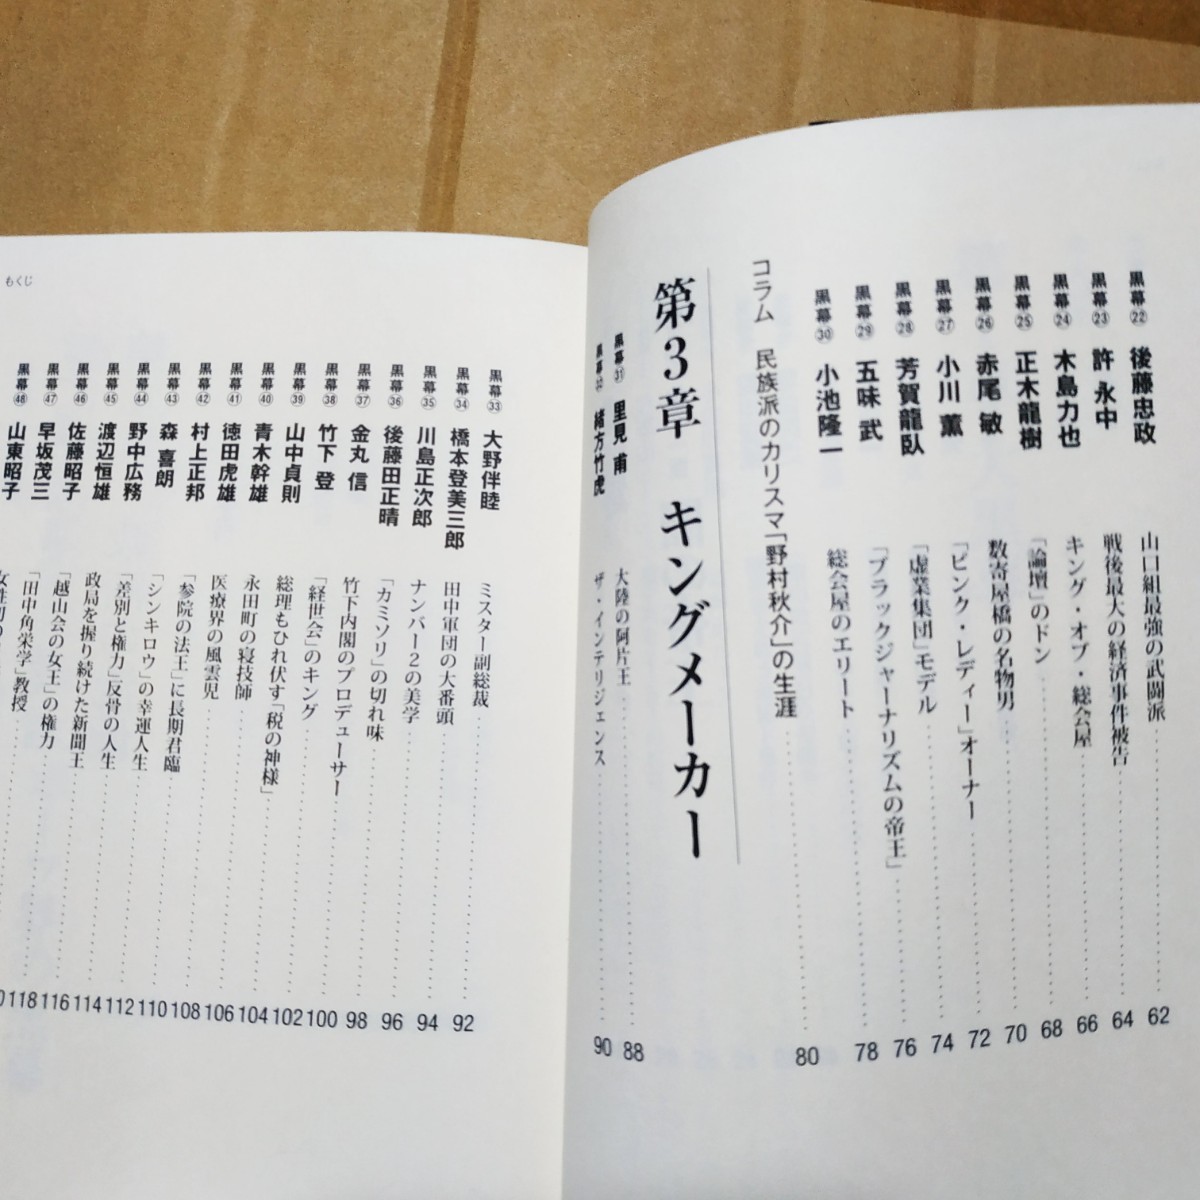 黒幕㉒ 後藤忠政 山口組最強の武闘派 62
黒幕㉓ 許 永中 戦後最大の経済事件被告 64
黒幕㉔ 木島力也 キング・オブ・総会屋 66
黒幕㉕ 正木龍樹 「論壇」のドン 68
黒幕㉖ 赤尾 敏 数寄屋橋の名物男 70
黒幕㉗ 小川 薫 「ピンク・レディー」オーナー 72
黒幕㉘ 芳賀龍臥 「虚業集団」モデル 74
黒幕㉙ 五味 武 「ブラックジャーナリズムの帝王」 76
黒幕㉚ 小池隆一 総会屋のエリート 78
コラム 民族派のカリスマ「野村秋介」の生涯 80
第3章 キングメーカー
黒幕㉛ 里見 甫 大陸の阿片王 88
黒幕㉜ 緒方竹虎 ザ・インテリジェンス 90
黒幕㉝ 大野伴睦 ミスター副総裁 92
黒幕㉞ 橋本登美三郎 田中軍団の大番頭 94
黒幕㉟ 川島正次郎 ナンバー2の美学 96
黒幕㊱ 後藤田正晴 「カミソリ」の切れ味 98
黒幕㊲ 金丸 信 竹下内閣のプロデューサー 100
黒幕㊳ 竹下 登 「経世会」のキング 102
黒幕㊴ 山中貞則 総理もひれ伏す「税の神様」 104
黒幕㊵ 青木幹雄 永田町の寝技師 106
黒幕㊶ 徳田虎雄 医療界の風雲児 108
黒幕㊷ 村上正邦 「参院の法王」に長期君臨 110
黒幕㊸ 森 喜朗 「シンキロウ」の幸運人生 112
黒幕㊹ 野中広務 「差別と権力」反骨の人生 114
黒幕㊺ 渡辺恒雄 政局を握り続けた新聞王 116
黒幕㊻ 佐藤昭子 「越山会の女王」の権力 118
黒幕㊼ 早坂茂三 「田中角栄学」教授
黒幕㊽ 山東昭子
もくじ